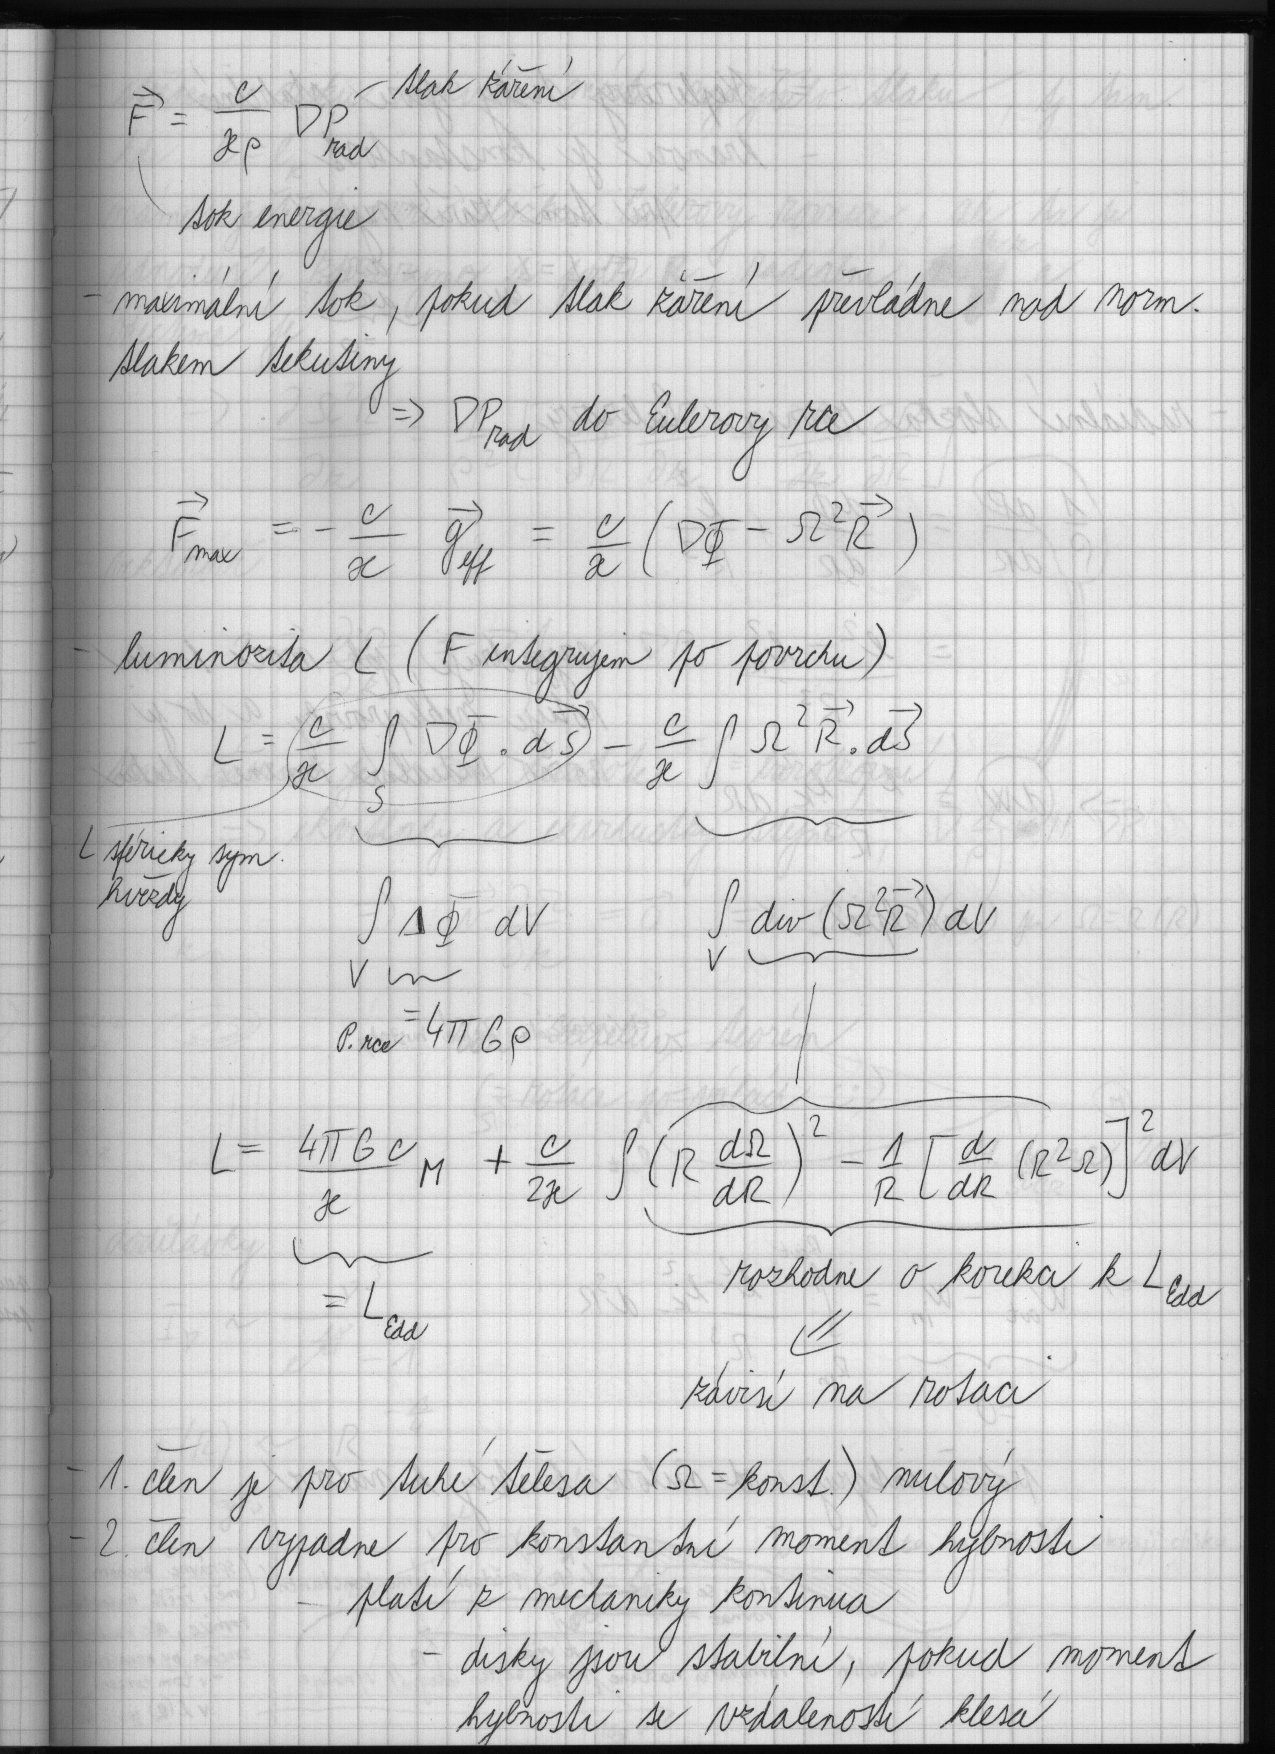 F⃗ = c/ϰρ ∇P_rad – tlak záření
tok energie
- maximální tok, pokud tlak záření převládne nad norm.
tlakem tekutiny
=> ∇P_rad do Eulerovy rce
F⃗_max = - c/ϰ g⃗_eff = c/ϰ (∇Φ - Ω²R⃗)
- luminozita L (F integrujem po povrchu)
L = c/ϰ ∫_S ∇Φ . dS⃗ - c/ϰ ∫ Ω²R⃗ . dS⃗
L sféricky sym.
hvězdy
∫_V ΔΦ dV ∫_V div (Ω²R⃗) dV
P. rce = 4πGρ
L = 4πGc/ϰ M + c/2ϰ ∫ (R dΩ/dR)² - 1/R [d/dR (R²Ω)]² dV
rozhodne o korekci k L_Edd
= L_Edd
závisí na rotaci
- 1. člen je pro tuhé tělesa (Ω = konst.) nulový
- 2. člen vypadne pro konstantní moment hybnosti
- platí z mechaniky kontinua
- disky jsou stabilní, pokud moment
hybnosti se vzdáleností klesá